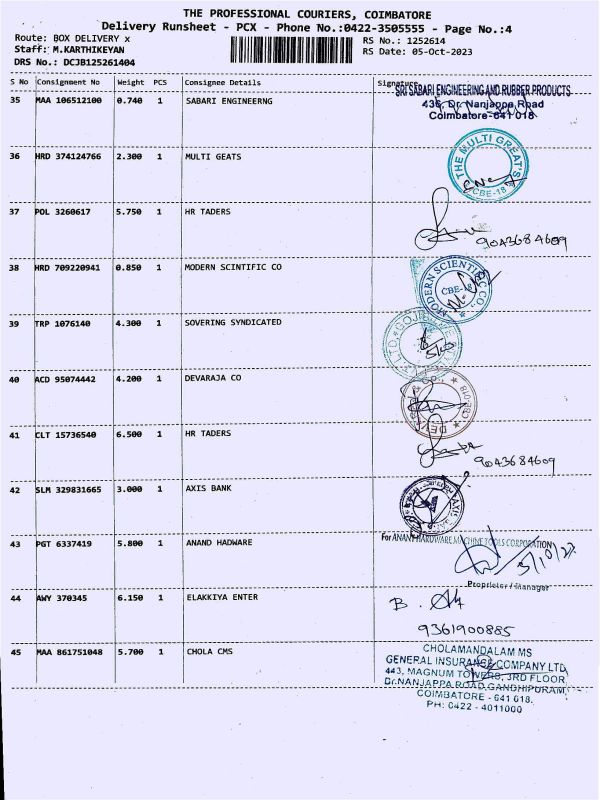 THE PROFESSIONAL COURIERS, COIMBATORE
Delivery Runsheet - PCX - Phone No.:0422-3505555 - Page No.:4
Route: BOX DELIVERY x
RS No.: 1252614
Staff: M.KARTHIKEYAN
RS Date: 05-Oct-2023
DRS No.: DCJB125261404
S No Consignment No Weight PCS Consignee Details Signature
SRI SABARI ENGINEERING AND RUBBER PRODUCTS
35 MAA 106512100 0.740 1 SABARI ENGINEERNG
436, Dr. Nanjappa Road
Coimbatore-641 018
36 HRD 374124766 2.300 1 MULTI GEATS
THE MULTI GREAT'S
CBE-18
37 POL 3260617 5.750 1 HR TADERS
9043684609
38 HRD 709220941 0.850 1 MODERN SCINTIFIC CO
MODERN SCIENTIFIC CO
CBE-18
39 TRP 1076140 4.300 1 SOVERING SYNDICATED
40 ACD 95074442 4.200 1 DEVARAJA CO
41 CLT 15736540 6.500 1 HR TADERS
9043684609
42 SLM 329831665 3.000 1 AXIS BANK
AXIS
43 PGT 6337419 5.800 1 ANAND HADWARE
For ANAND HARDWARE MACHINE TOOLS CORPORATION
5/10/23
Proprietor / Manager
44 AWY 370345 6.150 1 ELAKKIYA ENTER
9361900885
45 MAA 861751048 5.700 1 CHOLA CMS
CHOLAMANDALAM MS
GENERAL INSURANCE COMPANY LTD
443, MAGNUM TOWERS, 3RD FLOOR
Dr.NANJAPPA ROAD, GANDHIPURAM,
COIMBATORE - 641 018.
PH: 0422 - 4011000